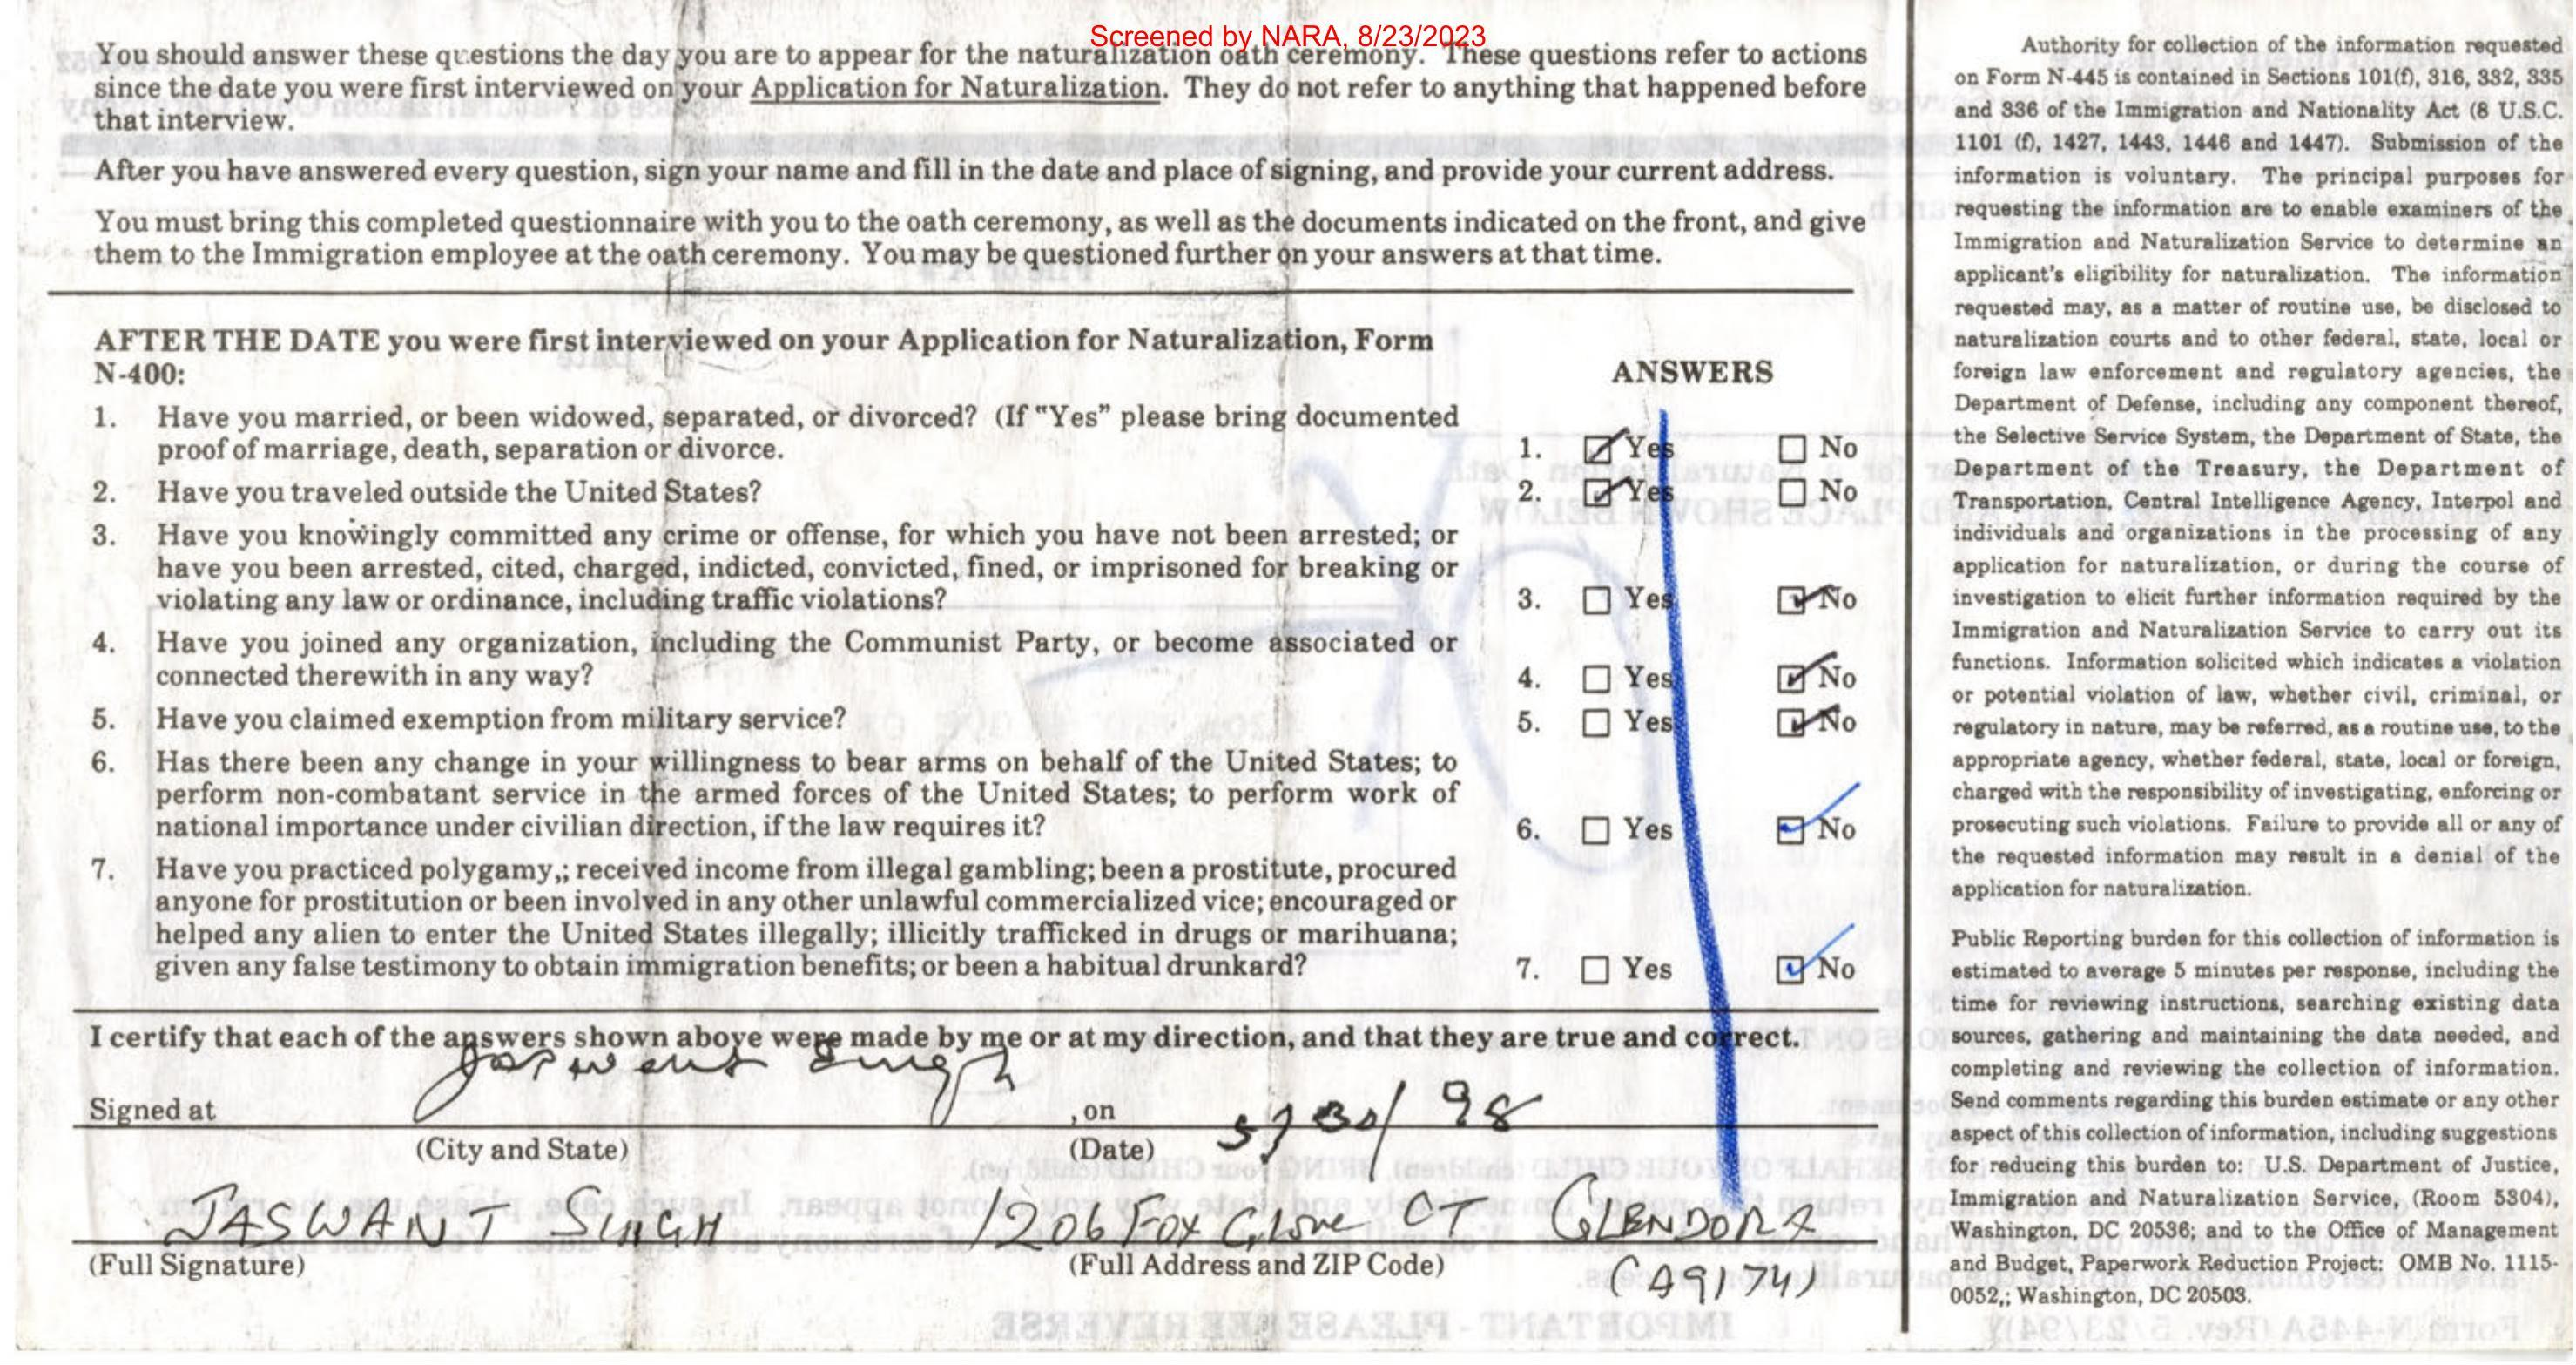 Screened by NARA, 8/23/2023
You should answer these questions the day you are to appear for the naturalization oath ceremony. These questions refer to actions
since the date you were first interviewed on your Application for Naturalization. They do not refer to anything that happened before
that interview.
After you have answered every question, sign your name and fill in the date and place of signing, and provide your current address.
You must bring this completed questionnaire with you to the oath ceremony, as well as the documents indicated on the front, and give
them to the Immigration employee at the oath ceremony. You may be questioned further on your answers at that time.
AFTER THE DATE you were first interviewed on your Application for Naturalization, Form
N-400:
ANSWERS
1. Have you married, or been widowed, separated, or divorced? (If "Yes" please bring documented
proof of marriage, death, separation or divorce.
1. Yes No
2. Have you traveled outside the United States?
2. Yes No
3. Have you knowingly committed any crime or offense, for which you have not been arrested; or
have you been arrested, cited, charged, indicted, convicted, fined, or imprisoned for breaking or
violating any law or ordinance, including traffic violations?
3. Yes No
4. Have you joined any organization, including the Communist Party, or become associated or
connected therewith in any way?
4. Yes No
5. Have you claimed exemption from military service?
5. Yes No
6. Has there been any change in your willingness to bear arms on behalf of the United States; to
perform non-combatant service in the armed forces of the United States; to perform work of
national importance under civilian direction, if the law requires it?
6. Yes No
7. Have you practiced polygamy,; received income from illegal gambling; been a prostitute, procured
anyone for prostitution or been involved in any other unlawful commercialized vice; encouraged or
helped any alien to enter the United States illegally; illicitly trafficked in drugs or marihuana;
given any false testimony to obtain immigration benefits; or been a habitual drunkard?
7. Yes No
I certify that each of the answers shown above were made by me or at my direction, and that they are true and correct.
Jaswant Singh
Signed at , on 5/30/98
(City and State) (Date)
JASWANT SINGH 1206 Fox Glove CT GLENDORA
(Full Signature) (Full Address and ZIP Code)
(A9174)
Authority for collection of the information requested
on Form N-445 is contained in Sections 101(f), 316, 332, 335
and 336 of the Immigration and Nationality Act (8 U.S.C.
1101 (f), 1427, 1443, 1446 and 1447). Submission of the
information is voluntary. The principal purposes for
requesting the information are to enable examiners of the
Immigration and Naturalization Service to determine an
applicant's eligibility for naturalization. The information
requested may, as a matter of routine use, be disclosed to
naturalization courts and to other federal, state, local or
foreign law enforcement and regulatory agencies, the
Department of Defense, including any component thereof,
the Selective Service System, the Department of State, the
Department of the Treasury, the Department of
Transportation, Central Intelligence Agency, Interpol and
individuals and organizations in the processing of any
application for naturalization, or during the course of
investigation to elicit further information required by the
Immigration and Naturalization Service to carry out its
functions. Information solicited which indicates a violation
or potential violation of law, whether civil, criminal, or
regulatory in nature, may be referred, as a routine use, to the
appropriate agency, whether federal, state, local or foreign,
charged with the responsibility of investigating, enforcing or
prosecuting such violations. Failure to provide all or any of
the requested information may result in a denial of the
application for naturalization.
Public Reporting burden for this collection of information is
estimated to average 5 minutes per response, including the
time for reviewing instructions, searching existing data
sources, gathering and maintaining the data needed, and
completing and reviewing the collection of information.
Send comments regarding this burden estimate or any other
aspect of this collection of information, including suggestions
for reducing this burden to: U.S. Department of Justice,
Immigration and Naturalization Service, (Room 5304),
Washington, DC 20536; and to the Office of Management
and Budget, Paperwork Reduction Project: OMB No. 1115-
0052,; Washington, DC 20503.